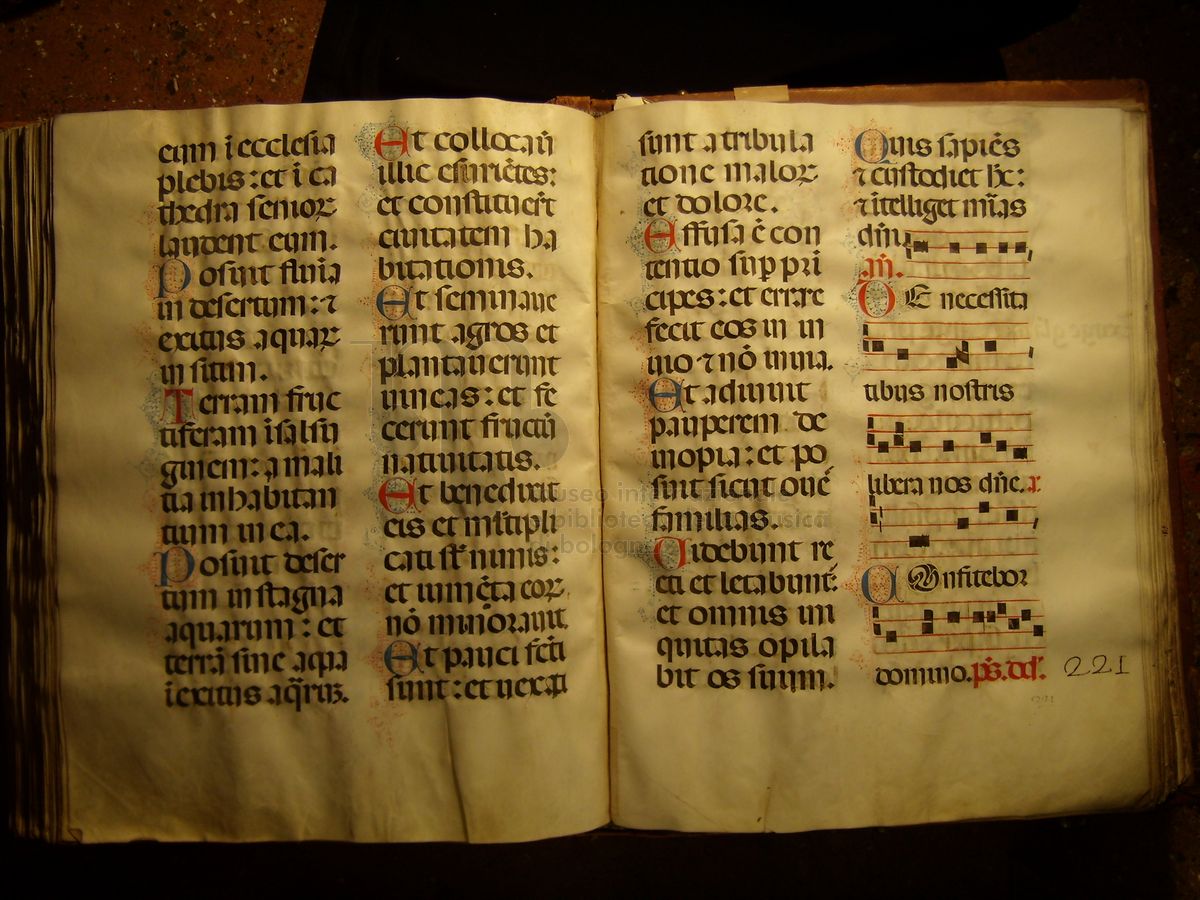 eum ī ecclesia
plebis : et ī ca
thedra senioꝝ
laudent eum.
Posuit flumīa
in desertum : ⁊
exitus aquaꝝ
in sitim.
Terram fruc
tiferam ī salsu
ginem : a mali
tia inhabitan
tium in ea.
Posuit deser
tum in stagna
aquarum : et
terrā sine aqua
ī exitus aq̄rum.
Et collocauit
illic esuriētes :
et constituerūt
ciuitatem ha
bitationis.
Et seminaue
runt agros et
plantauerunt
uineas : et fe
cerunt fructū
natiuitatis.
Et benedixit
eis et mltipli
cati st nimis :
et iumēta eoꝝ
nō minorauit.
Et pauci fcti
sunt : et uexa
sunt a tribula
tione maloꝝ
et dolore.
Effusa ē con
tentio sup pri
cipes : et errare
fecit eos in in
uio ⁊ nō in uia.
Et adiuuit
pauperem de
inopia : et po
suit sicut oues
familias.
Uidebunt re
cti et letabunt :
et omnis ini
quitas opila
bit os suum.
Quis sapiēs
⁊ custodiet hc :
⁊ ītelliget mīas
dn̄i.
añ.
DE necessita
tibus nostris
libera nos dn̄e.
COnfitebor
domino. ps. dd.
221
museo internazionale
biblioteca della musica
bologna